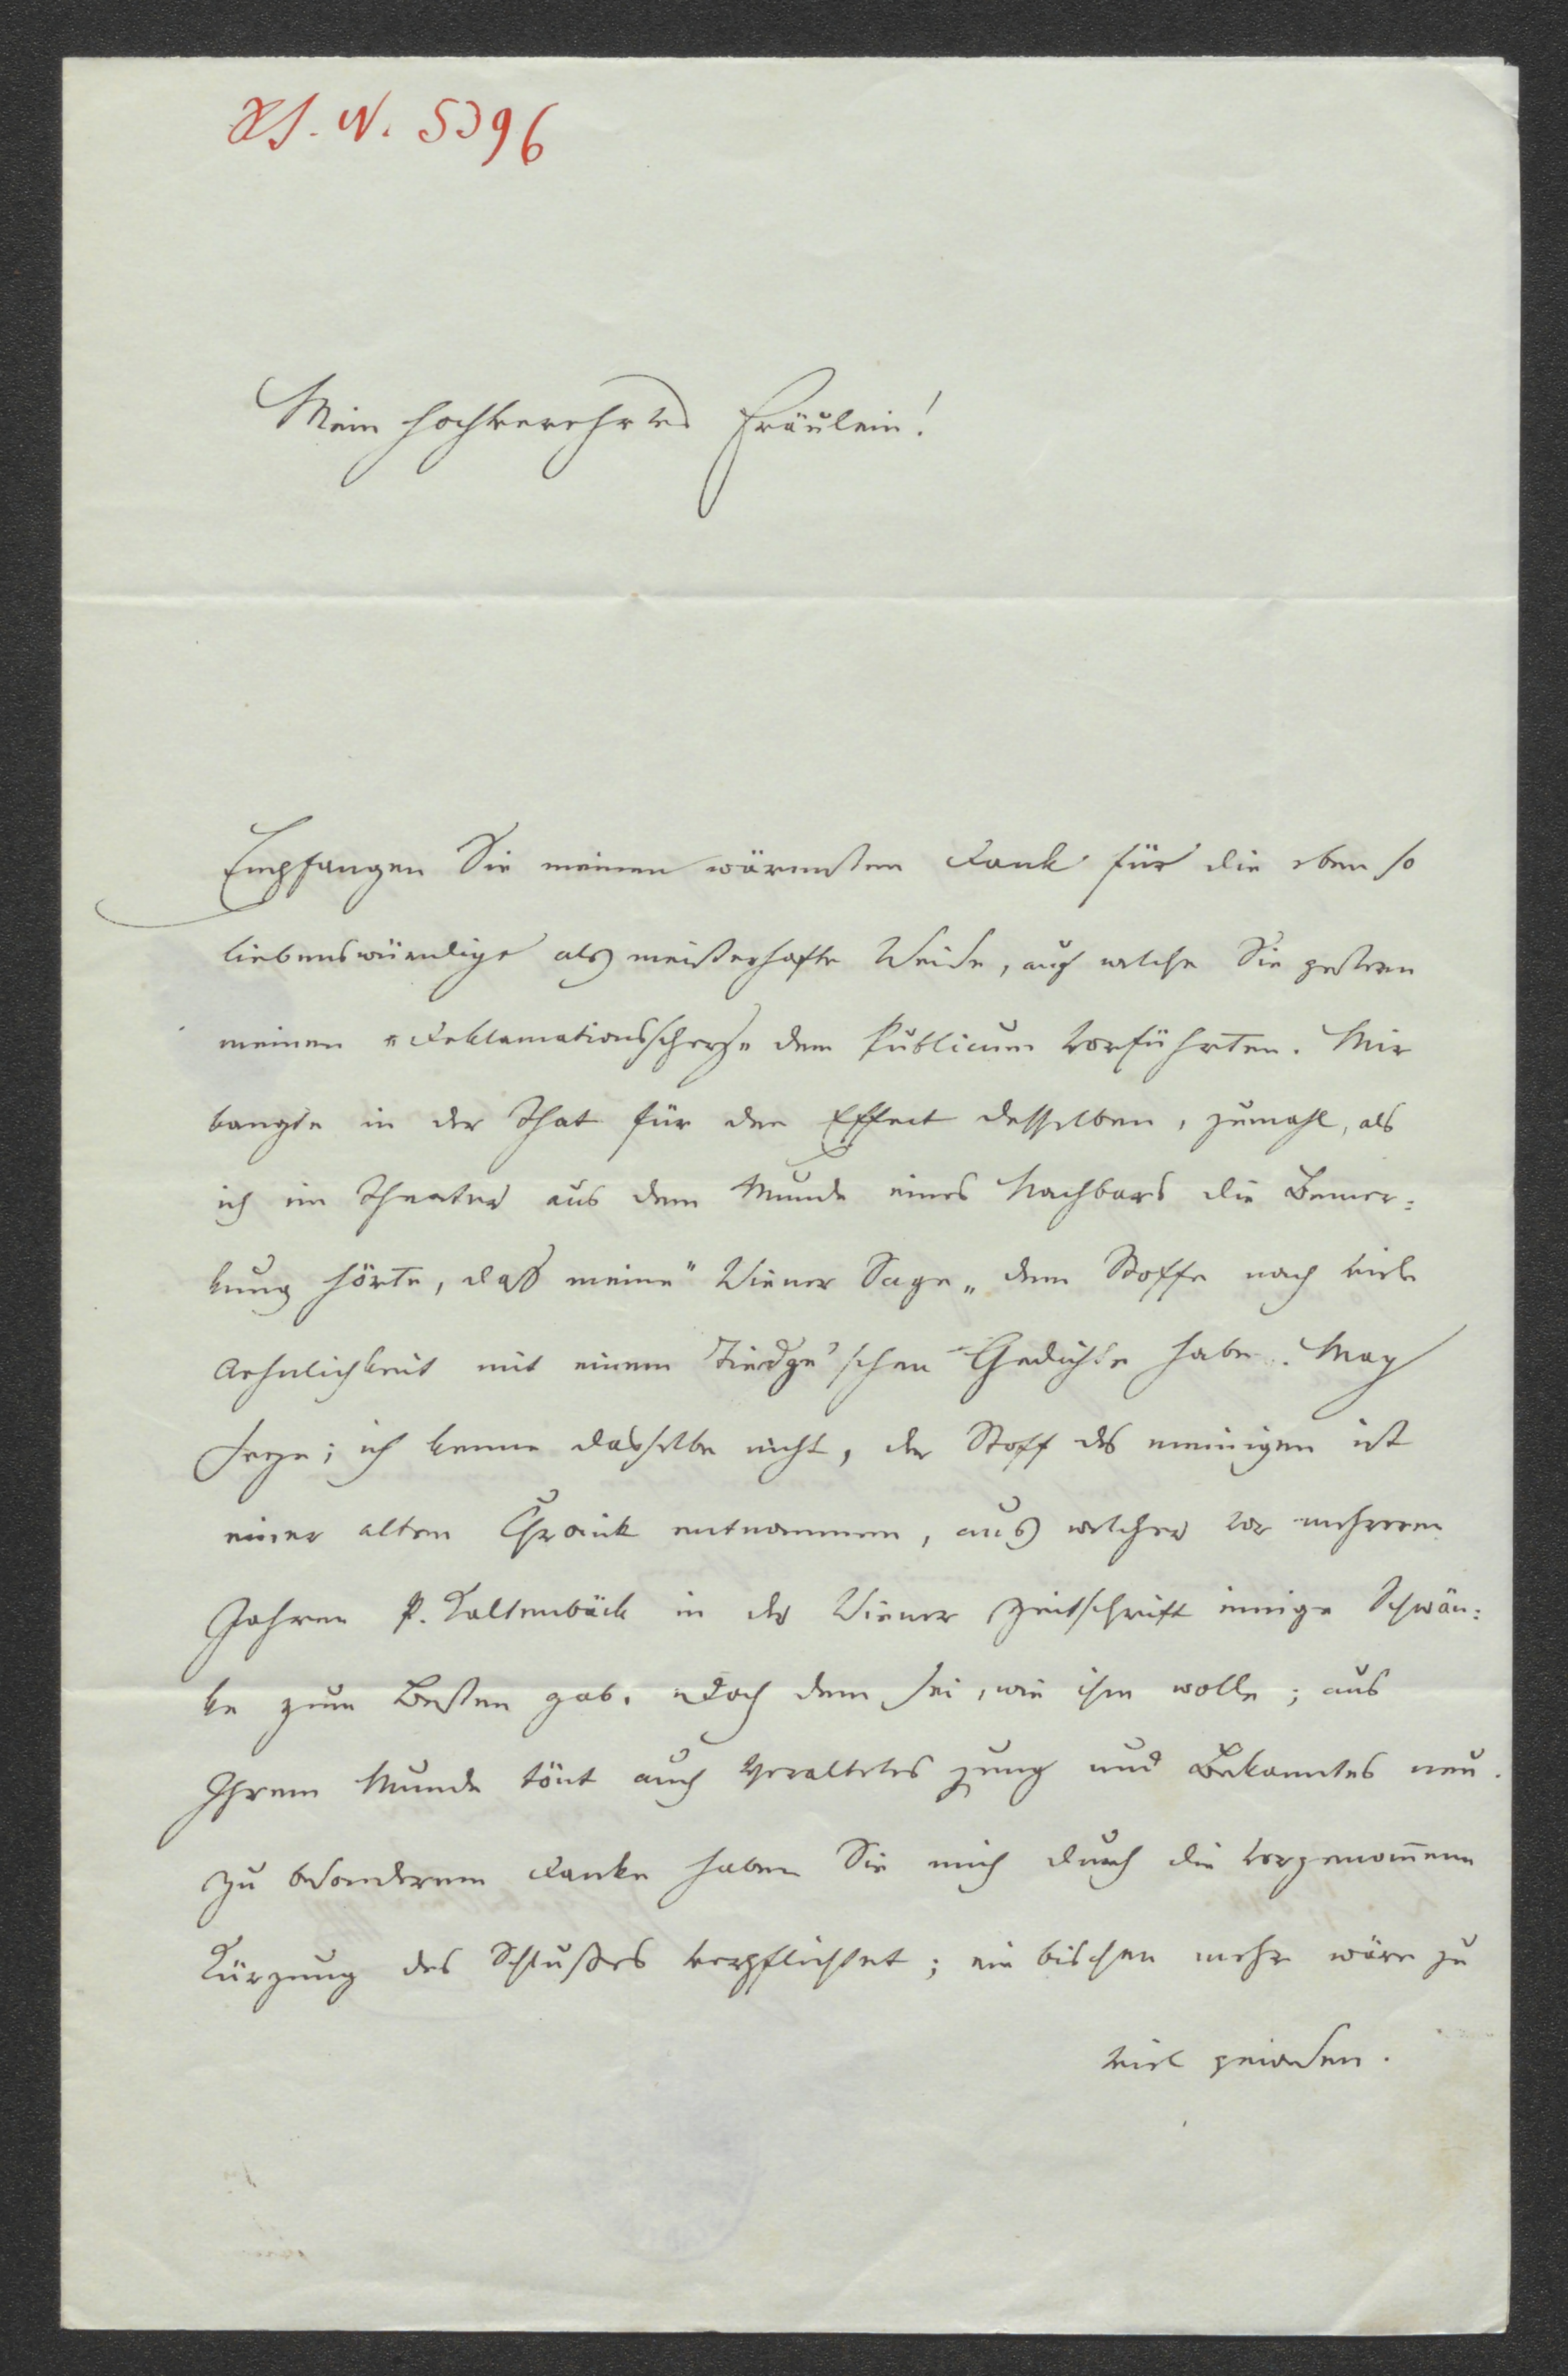 H. I. N. 5396
Mein hochverehrtes Fräulein!
Empfangen Sie meinen wärmsten Dank für die eben so
liebenswürdige als meisterhafte Weise, auf welche Sie gestern
meinen „Deklamationsscherz„ dem Publicum vorführten. Mir
bangte in der That für den Effect desselben, zumahl, als
ich im Theater aus dem Munde eines Nachbars die Bemer:
kung hörte, daß meine "Wiener Sage„ dem Stoffe nach viele
Aehnlichkeit mit einem Tiedge'schen Gedichte habe. Mag
seyn; ich kenne dasselbe nicht, der Stoff des meinigen ist
einer alten Chronik entnommen, aus welcher vor mehreren
Jahren P. Kaltenbäck in der Wiener Zeitschrift einige Schwän:
ke zum Besten gab. Doch dem sei, wie ihm wolle; aus
Ihrem Munde tönt auch Veraltetes jung und Bekanntes neu.
Zu besonderem Danke haben Sie mich durch die vorgenom̄ene
Kürzung des Schlußes verpflichtet; ein bischen mehr wäre zu
viel gewesen.